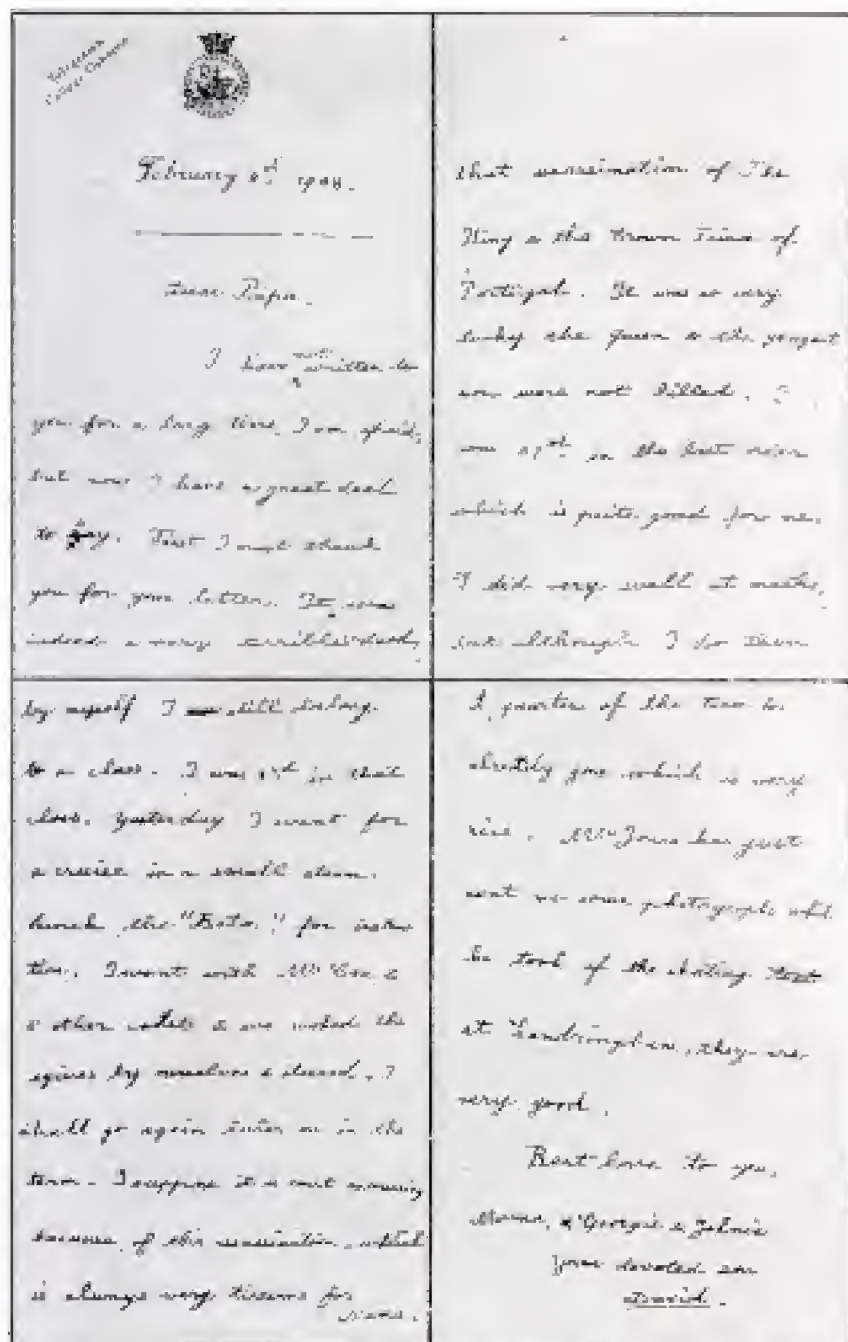 Telegrams
College
February 6th 1908.
Dear Papa.
I have not written to
you for a long time, I am afraid,
but now I have a great deal
to say. First I must thank
you for your letter. It was
indeed a very terrible death,
that assasination of The
King & the Crown Prince of
Portugal. It was so very
lucky the Queen & the yongest
son were not killed. I
was in the last order
which is quite good for me.
I did very well at maths,
but although I do them
by myself I still belong
to a class. I was in that
class. Yesterday I went for
a cruise in a small steam
launch the for instru
tion. I went with Mr &
& other cadets & we worked the
by ourselves & steered. I
shall go again later on in the
term. I suppose it is court mourning
because of this assasination, which
is always very tiresome for
Mama.
A quarter of the term is
already gone which is very
nice. Mr Jones has just
sent me some photographs which
he took of the skating
at Sandringham, they are
very good.
Best love to you,
Mama, & Georgie & Johnie
Your devoted son
David.